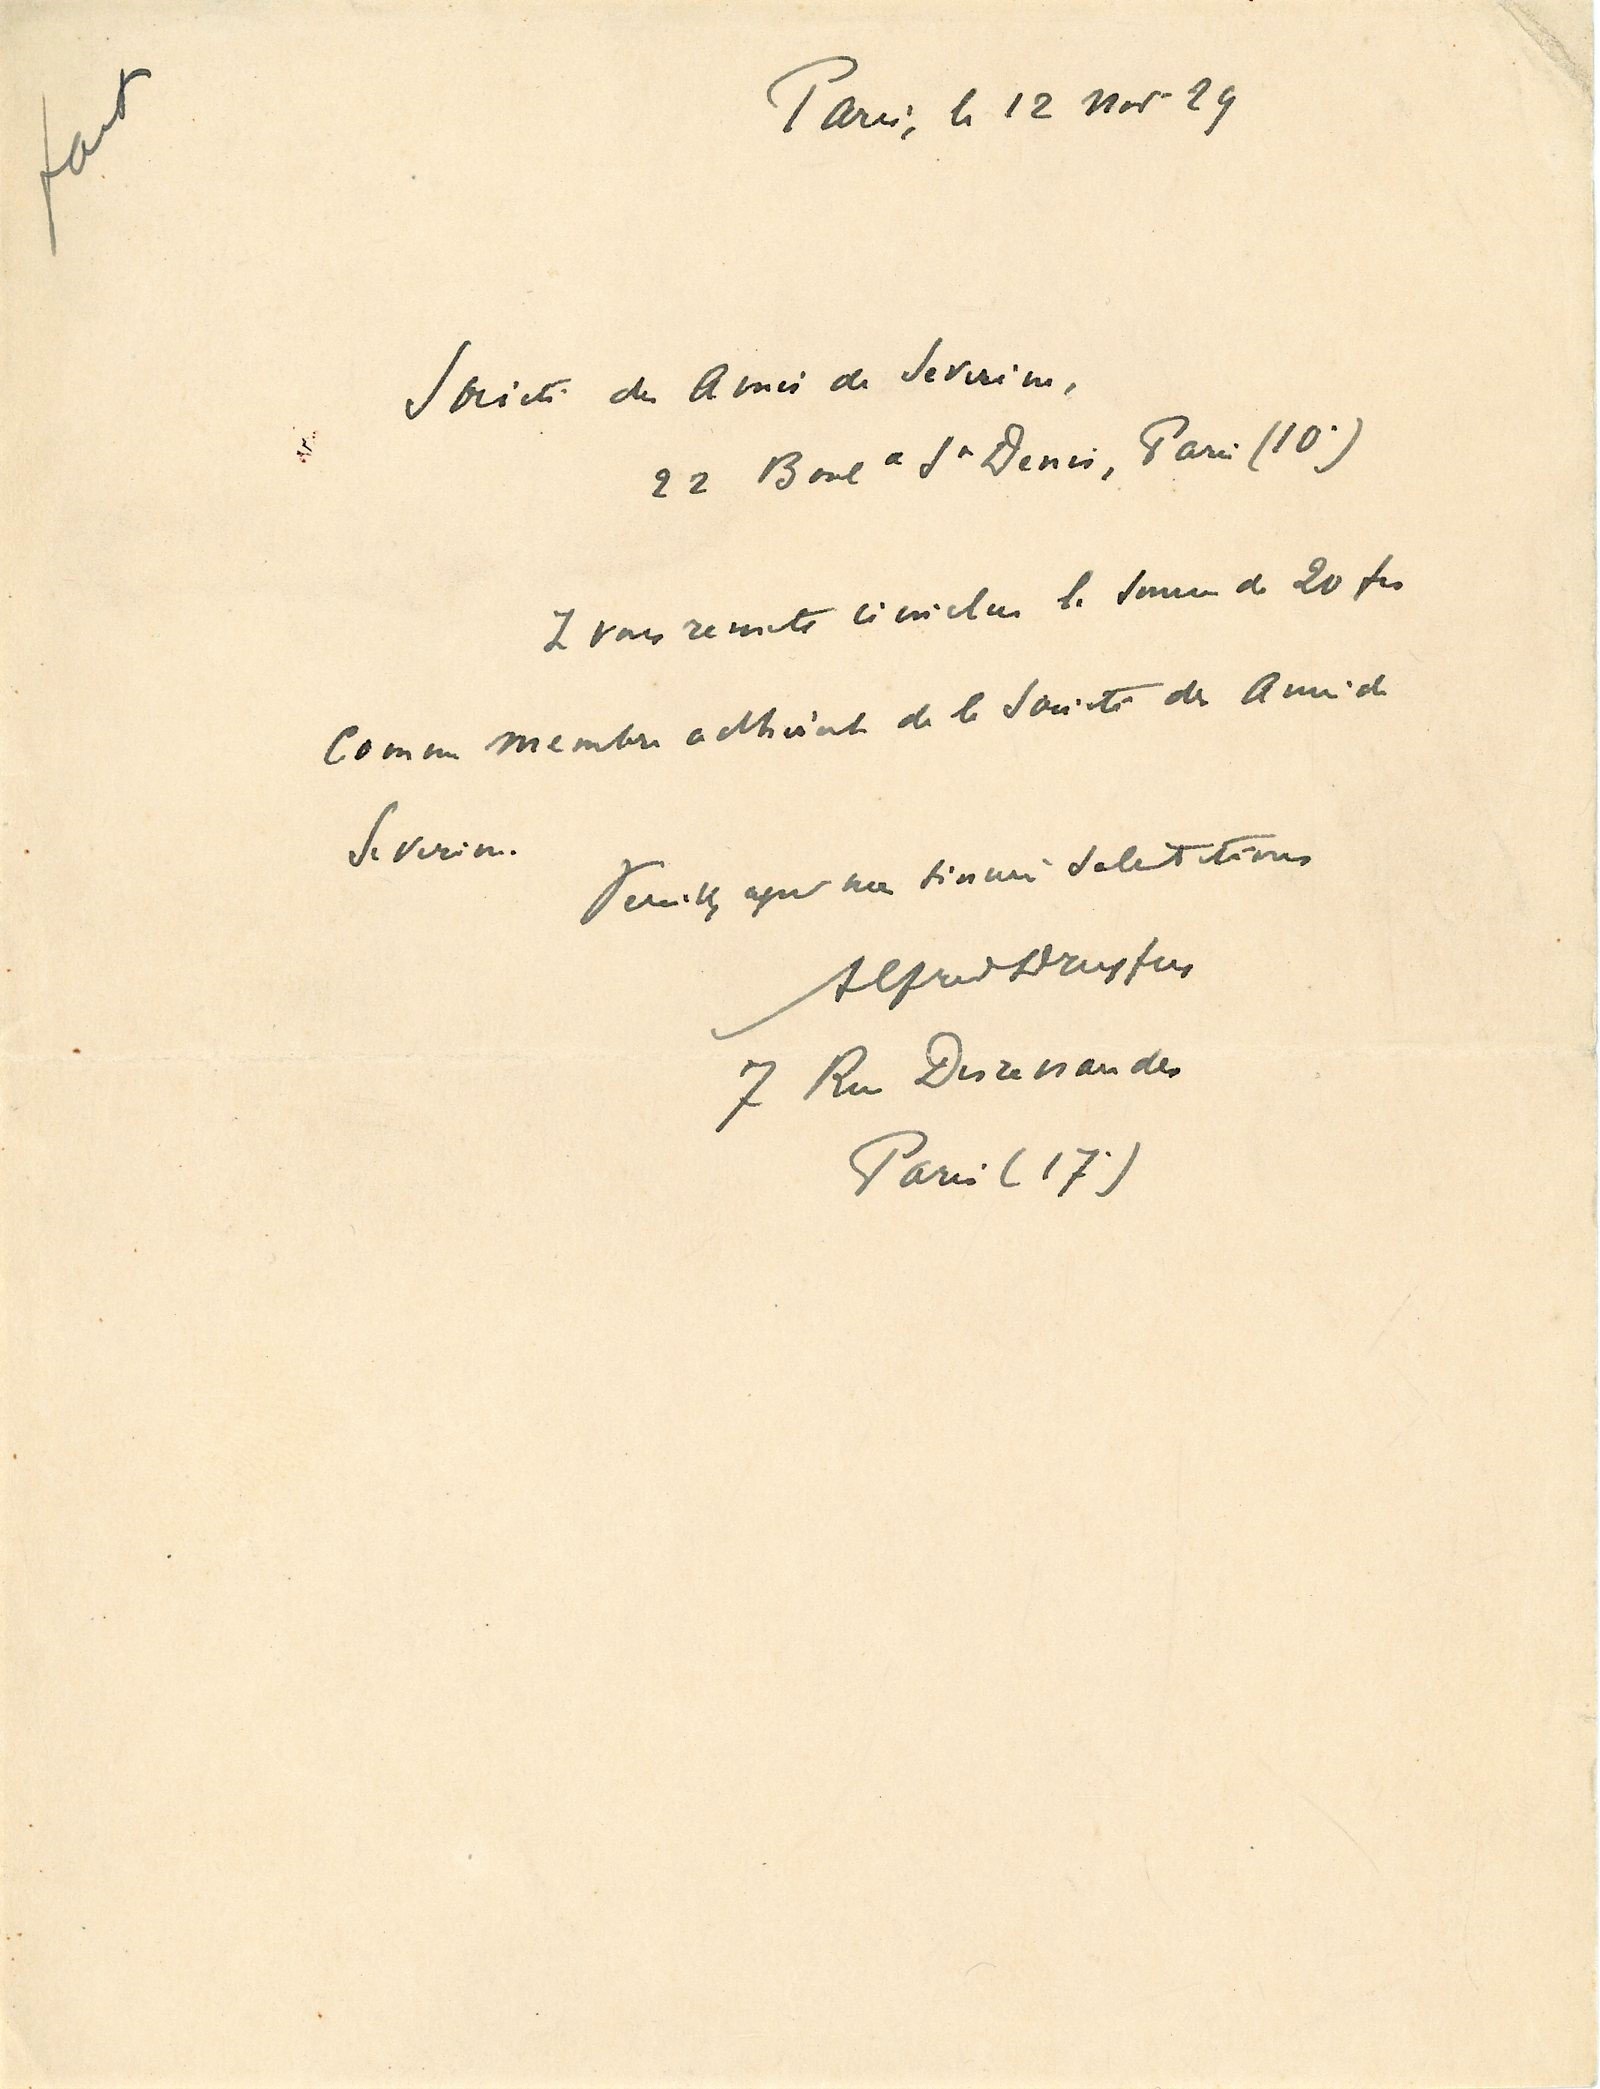 fait
Paris, le 12 Nov 29
Société des Amis de Severine,
22 Boul d St Denis, Paris (10e)
Je vous remets ci inclus la somme de 20 frs
Comme membre adhérent de la Société des Amis de
Severine.
Veuillez agréer mes sincères salutations
Alfred Dreyfus
7 Rue Desrenaudes
Paris (17e)